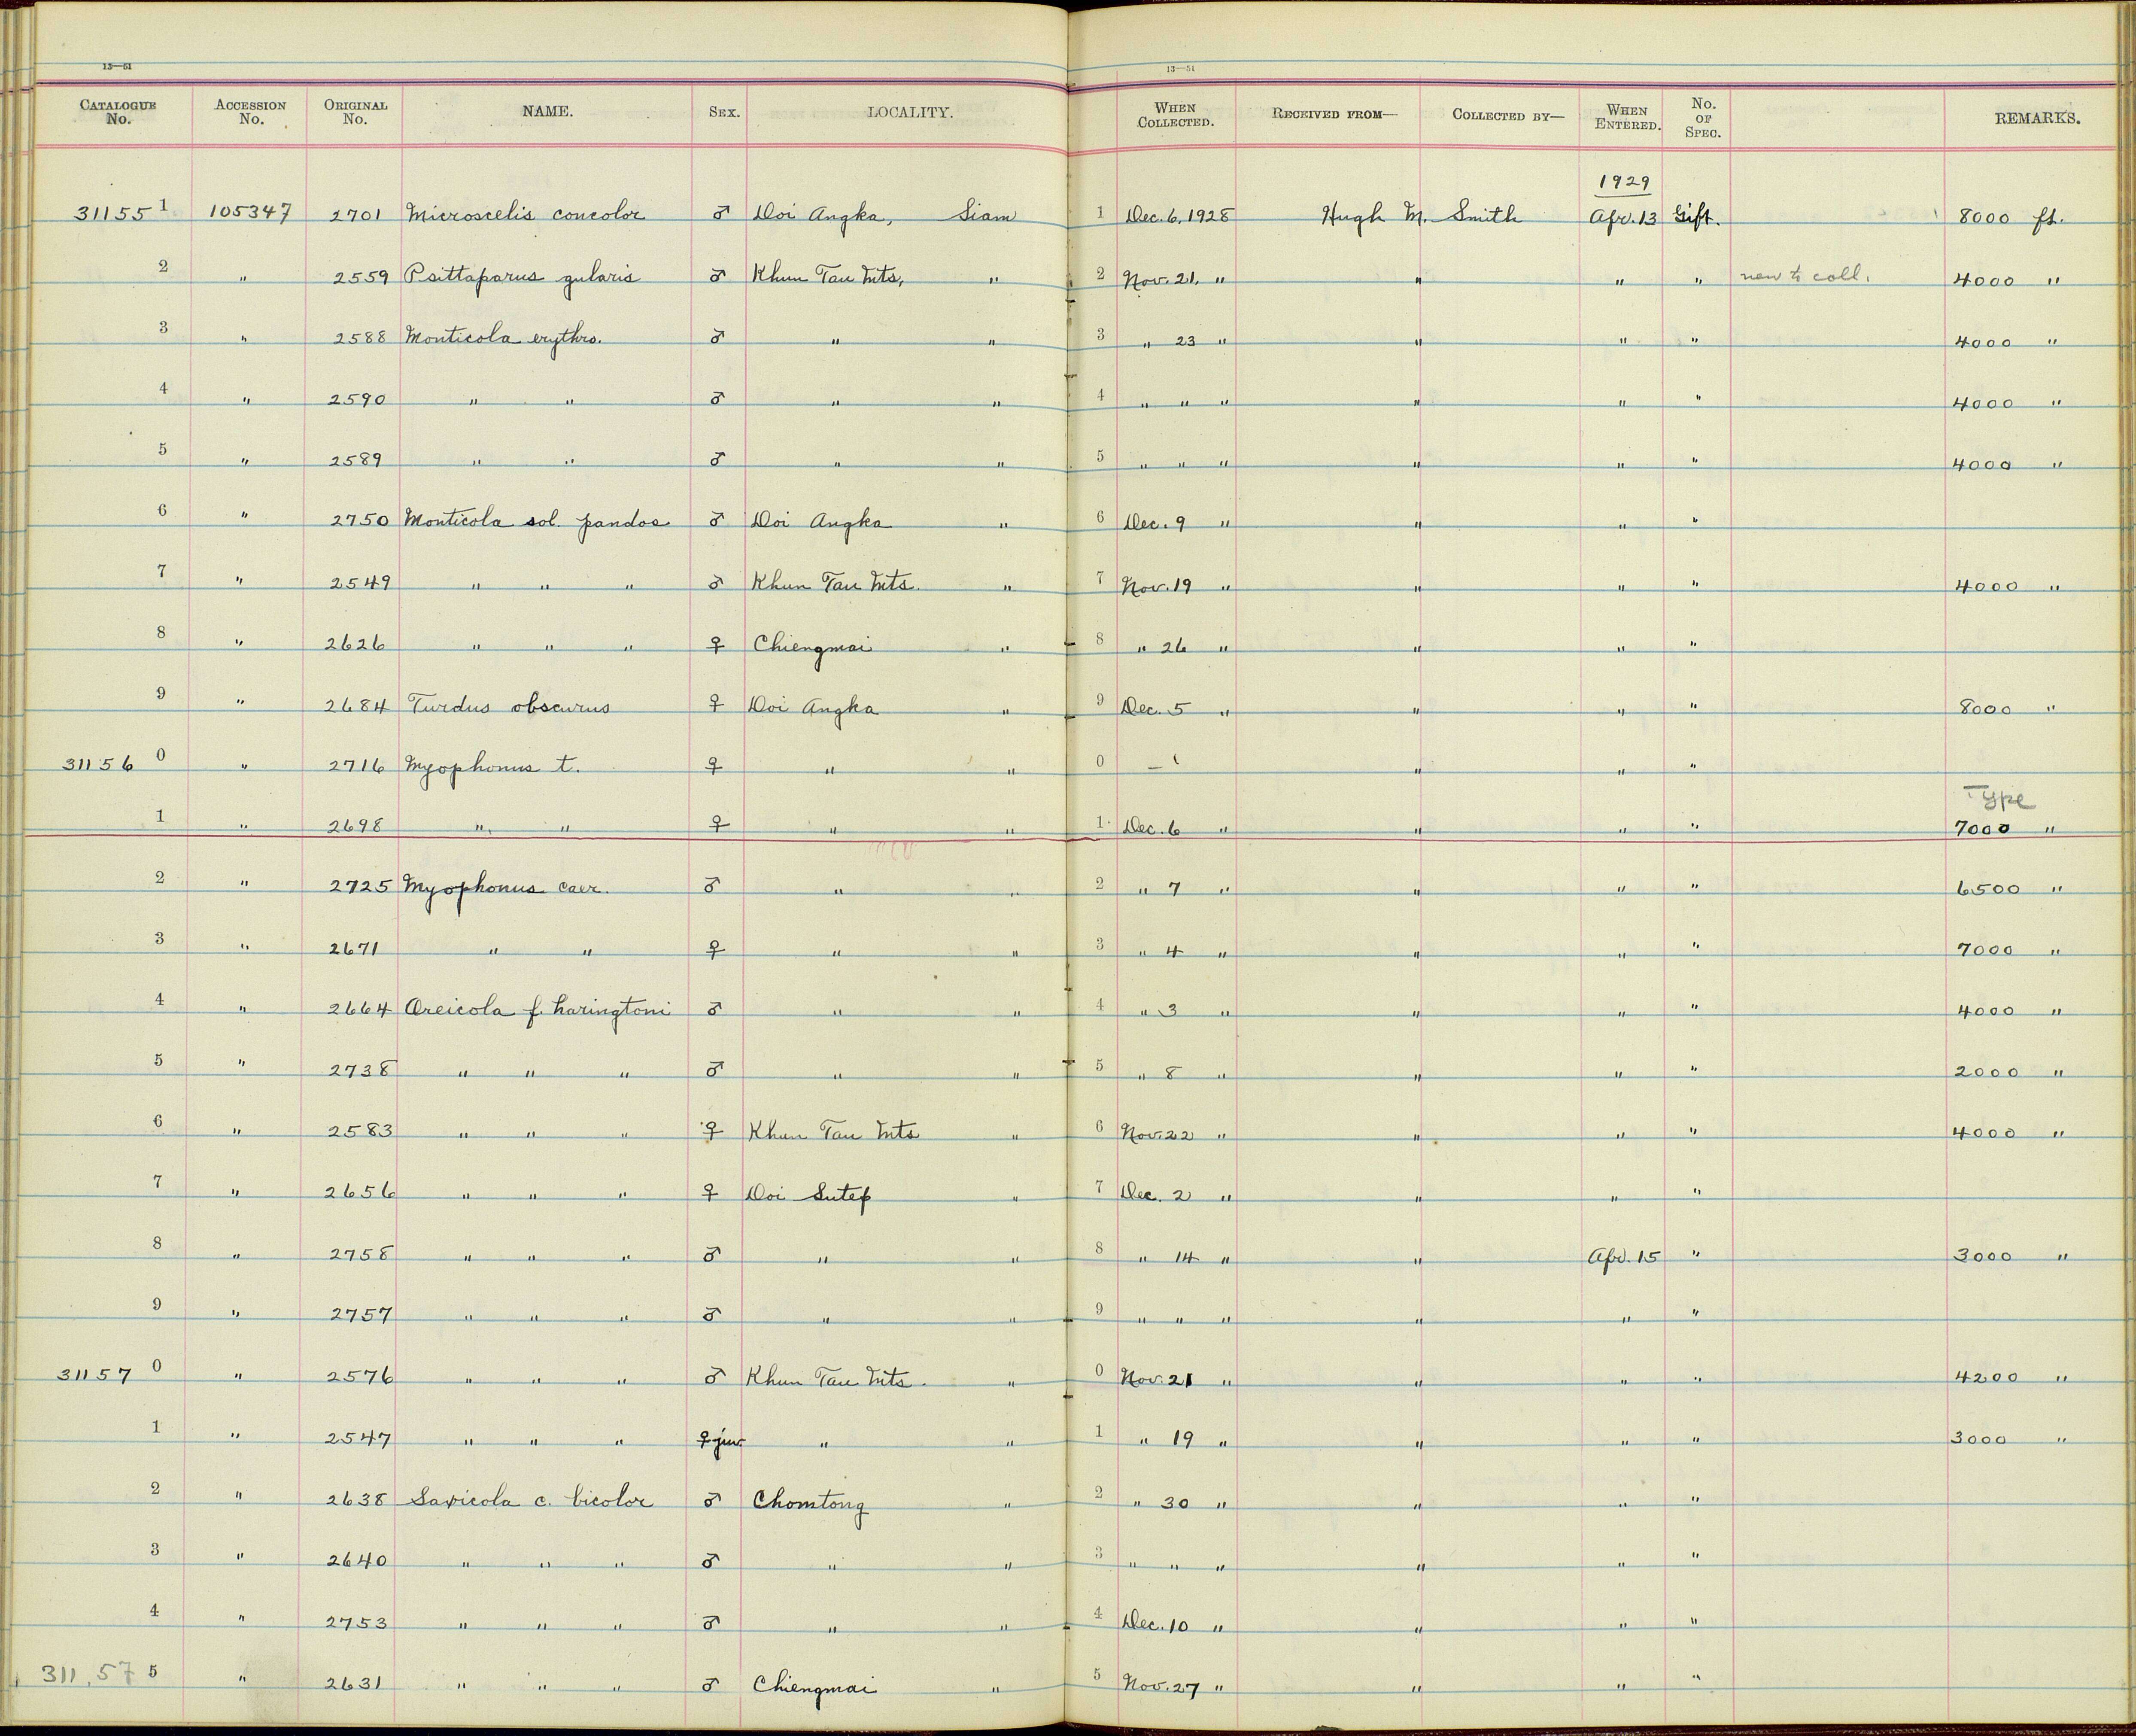 13—51 13—51
CATALOGUE No. ACCESSION No. ORIGINAL No. NAME. SEX. LOCALITY. WHEN COLLECTED. RECEIVED FROM— COLLECTED BY— WHEN ENTERED. No. OF SPEC. REMARKS.
1929
31155 1 105347 2701 Microscelis concolor ♂ Doi Angka, Siam 1 Dec. 6, 1928 Hugh M. Smith Apr. 13 Gift. 8000 ft.
2 " 2559 Psittaparus gularis ♂ Khun Tan Mts, " 2 Nov. 21, " " " " new to coll. 4000 "
3 " 2588 Monticola erythro. ♂ " " 3 " 23 " " " " 4000 "
4 " 2590 " " ♂ " " 4 " " " " " " 4000 "
5 " 2589 " " ♂ " " 5 " " " " " " 4000 "
6 " 2750 Monticola sol. pandoo ♂ Doi Angka " 6 Dec. 9 " " " "
7 " 2549 " " " ♂ Khun Tan Mts. " 7 Nov. 19 " " " " 4000 "
8 " 2626 " " " ♀ Chiengmai " 8 " 26 " " " "
9 " 2684 Turdus obscurus ♀ Doi Angka " 9 Dec. 5 " " " " 8000 "
31156 0 " 2716 Myophonus t. ♀ " " 0 — " " "
Type
1 " 2698 " " ♀ " " 1 Dec. 6 " " " " 7000 "
2 " 2725 Myophonus caer. ♂ " " 2 " 7 " " " " 6500 "
3 " 2671 " " ♀ " " 3 " 4 " " " " 7000 "
4 " 2664 Oreicola f. haringtoni ♂ " " 4 " 3 " " " " 4000 "
5 " 2738 " " " ♂ " " 5 " 8 " " " " 2000 "
6 " 2583 " " " ♀ Khun Tan Mts " 6 Nov. 22 " " " " 4000 "
7 " 2656 " " " ♀ Doi Sutep " 7 Dec. 2 " " " "
8 " 2758 " " " ♂ " " 8 " 14 " " Apr. 15 " 3000 "
9 " 2757 " " " ♂ " " 9 " " " " " "
31157 0 " 2576 " " " ♂ Khun Tan Mts. " 0 Nov. 21 " " " " 4200 "
1 " 2547 " " " ♀ juv. " " 1 " 19 " " " " 3000 "
2 " 2638 Saxicola c. bicolor ♂ Chomtong " 2 " 30 " " " "
3 " 2640 " " " ♂ " " 3 " " " " " "
4 " 2753 " " " ♂ " " 4 Dec. 10 " " " "
311,57 5 " 2631 " " " ♂ Chiengmai " 5 Nov. 27 " " " "